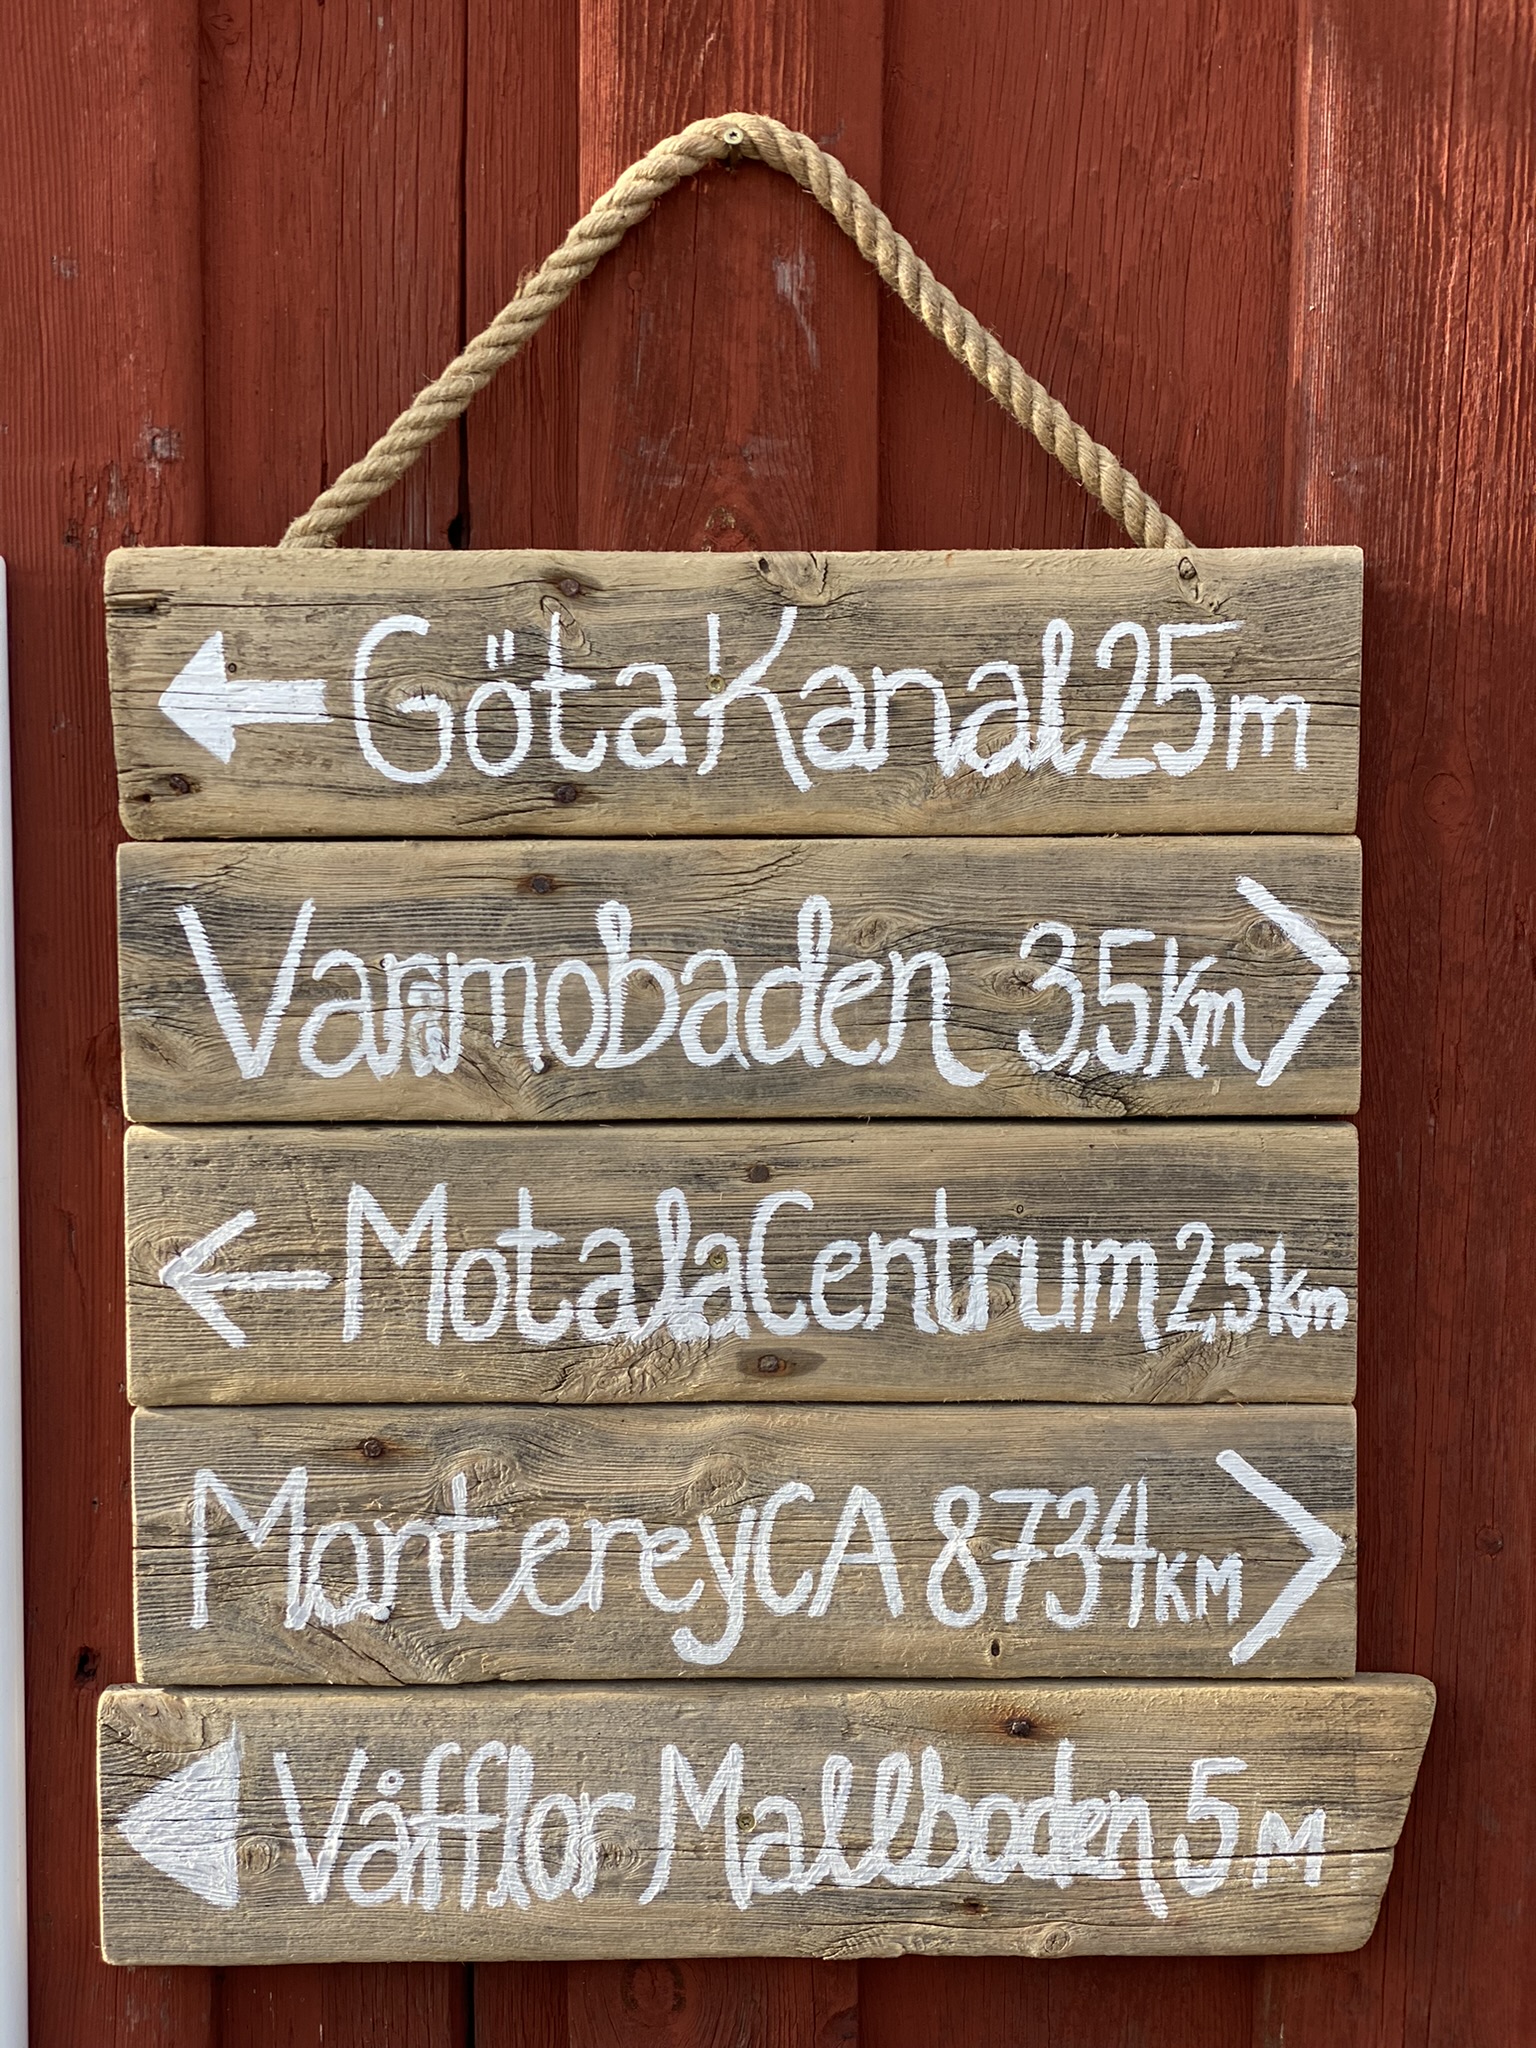 ← Göta Kanal 25m
Varmobaden 3,5km >
← Motala Centrum 2,5km
Monterey CA 8734 KM >
Våfflor Mallboden 5 M